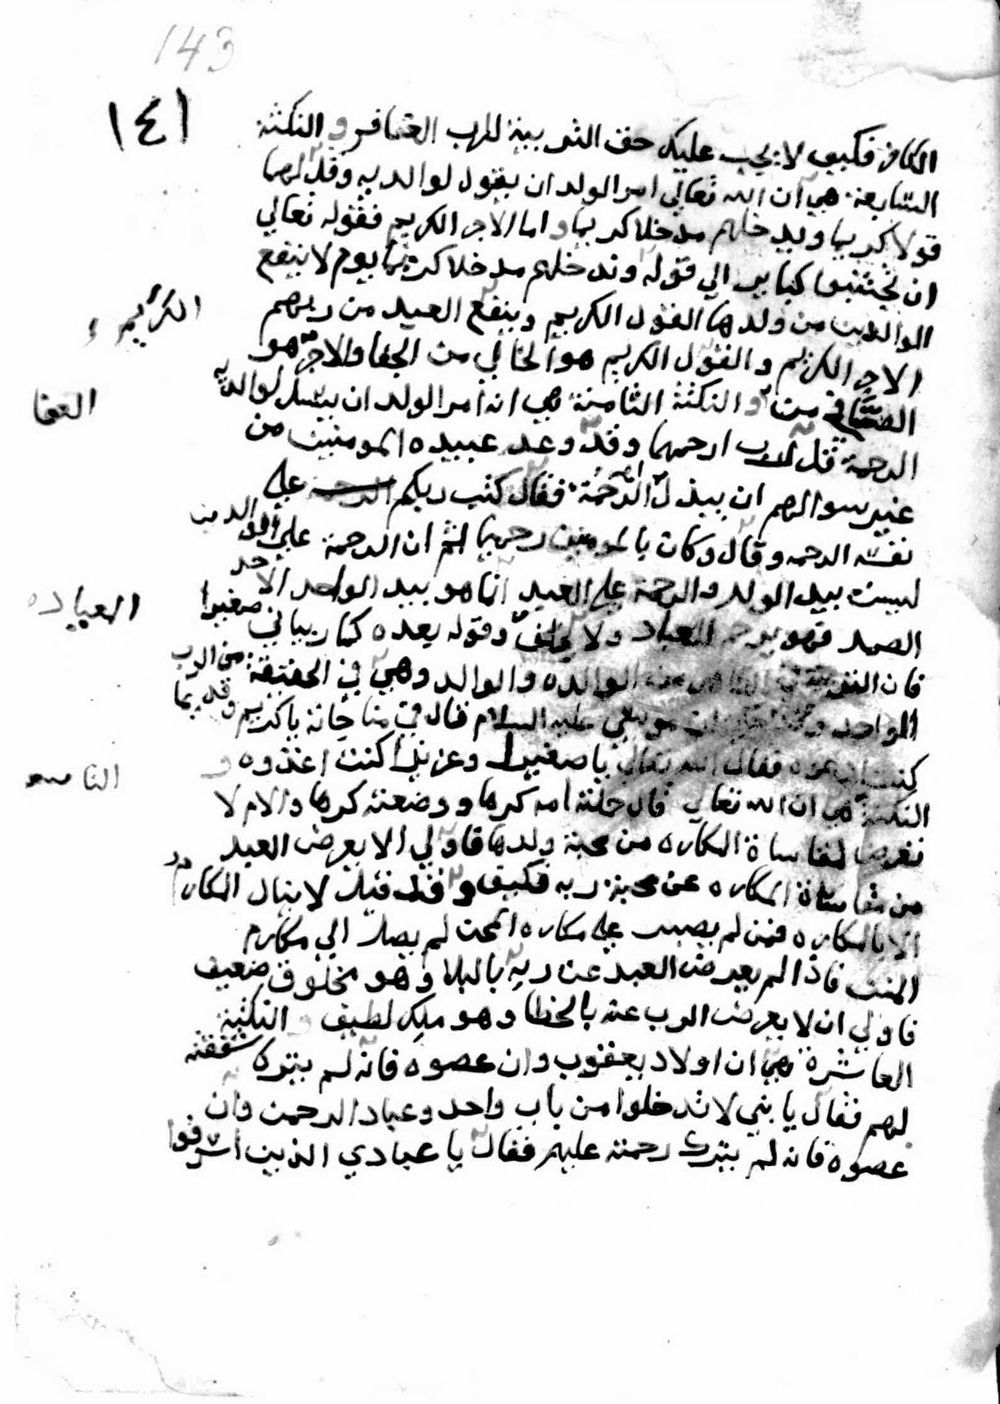 143
١٤١
الكافر فكيف لا يجب عليك حق التربية للرب الغافر و النكتة
السابعة هي ان الله تعالى امر الولد ان يقول لوالديه وقل لهما
قولا كريما ويدخلهم مدخلا كريما و اما الاجر الكريم فقوله تعالي
ان تجتنبوا كباير الي قوله وندخلهم مدخلا كريما يوم لا ينفع
الوالدين من ولدها القول الكريم وينفع العبيد من ربهم
الكريم
الاجر الكريم و القول الكريم هو الخالي من الجفا والاجر هو
الصافي من و النكتة الثامنة هي انه امر الولد ان يسل لوالديه
العفا
الرحمة قل رب ارحمهما وقد وعد عبيده المومنين من
غير سوالهم ان يبذل الرحمة فقال كتب ربكم علي
نفسه الرحمه وقال وكان بالمومنين رحيما ثم ان الرحمة علي الوالدين
ليست بيد الولد والرحمة علي العبيد انما هو بيد الواحد الاحد
الصمد فهو يرحم العباد ولا وقوله بعده كما ربياني صغيرا
العباده
فان التربية من الوالده والوالد وهي في الحقيقة من الرب
الواحد ان موسى عليه السلام قال في مناجاته يا كريم وقديما
كنت فقال الله تعالى يا صغيرا وعزتي كنت اغذوه و
الناسعه
النكتة هي ان الله تعالى قال حملته امه كرها ووضعته كرها والام لا
تعرض لمقاساة المكاره من محبة ولدها فاولي الا يعرض العبد
من مقاساة المكاره عن محبة ربه فكيف و قد قيل لا ينال المكارم
الا بالمكاره فمن لم يصبر علي مكاره المحن لم يصل الي مكارم
المنن فاذا لم يعرض العبد عن ربه بالبلا وهو مخلوق ضعيف
فاولي ان لا يعرض الرب عنه بالخطا وهو ملك لطيف و النكتة
العاشرة هي ان اولاد يعقوب وان عصوه فانه لم يترك شفقته
لهم فقال يا بني لا تدخلوا من باب واحد وعباد الرحمن وان
عصوه فانه لم يترك رحمته عليهم فقال يا عبادي الذين اسرفوا